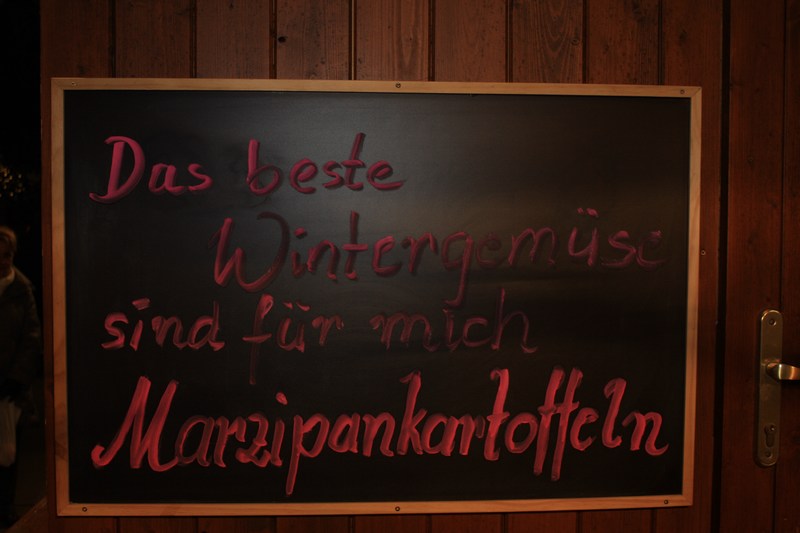 Das beste
Wintergemüse
sind für mich
Marzipankartoffeln